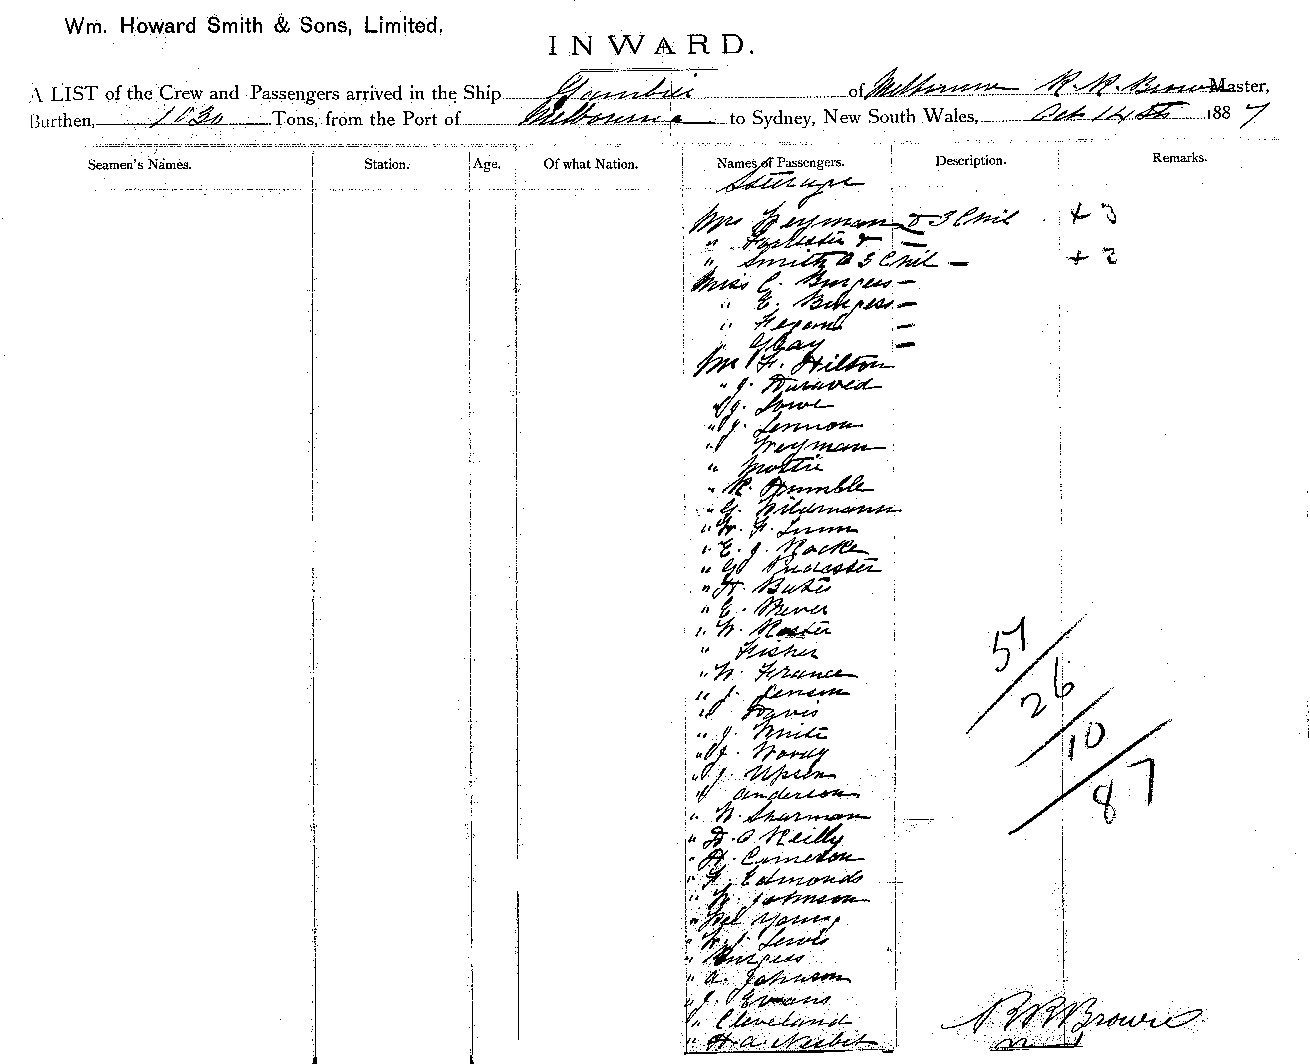 Wm. Howard Smith & Sons, Limited,
INWARD.
A LIST of the Crew and Passengers arrived in the Ship Gambier of Melbourne R. R. Brown Master,
Burthen, Tons, from the Port of Melbourne to Sydney, New South Wales, Oct 14th 1887
Seamen's Names. Station. Age. Of what Nation. Names of Passengers. Description. Remarks.
Steerage
Mrs Weyman & 3 Chil + 3
" &  —
" Smith & 3 Chil — + 2
Miss C. Burgess —
" E. Burgess —
" —
" Gray —
Mr F. Hilton
" J.
" J. Lowe
" J. Lennon
" Weyman
"
" R. Humble
" G. Wildemann
" F. Lunn
" E. J. Rocke
" G.
" H. Bates
" E.
" W. Roster
" Fisher
" W. France
" J. Jenson
" Davis
" J. White
" J. Woody
" J. Upsen
" Anderson
" W. Sharman
" D. O Reilly
" A. Cameron
" F. Edmonds
" W. Johnson
" Young
" Lewis
" Burgess
" A. Johnson
" J. Evans
" Cleveland
" H. A. Nesbit
51
26
10
87
R R Brown